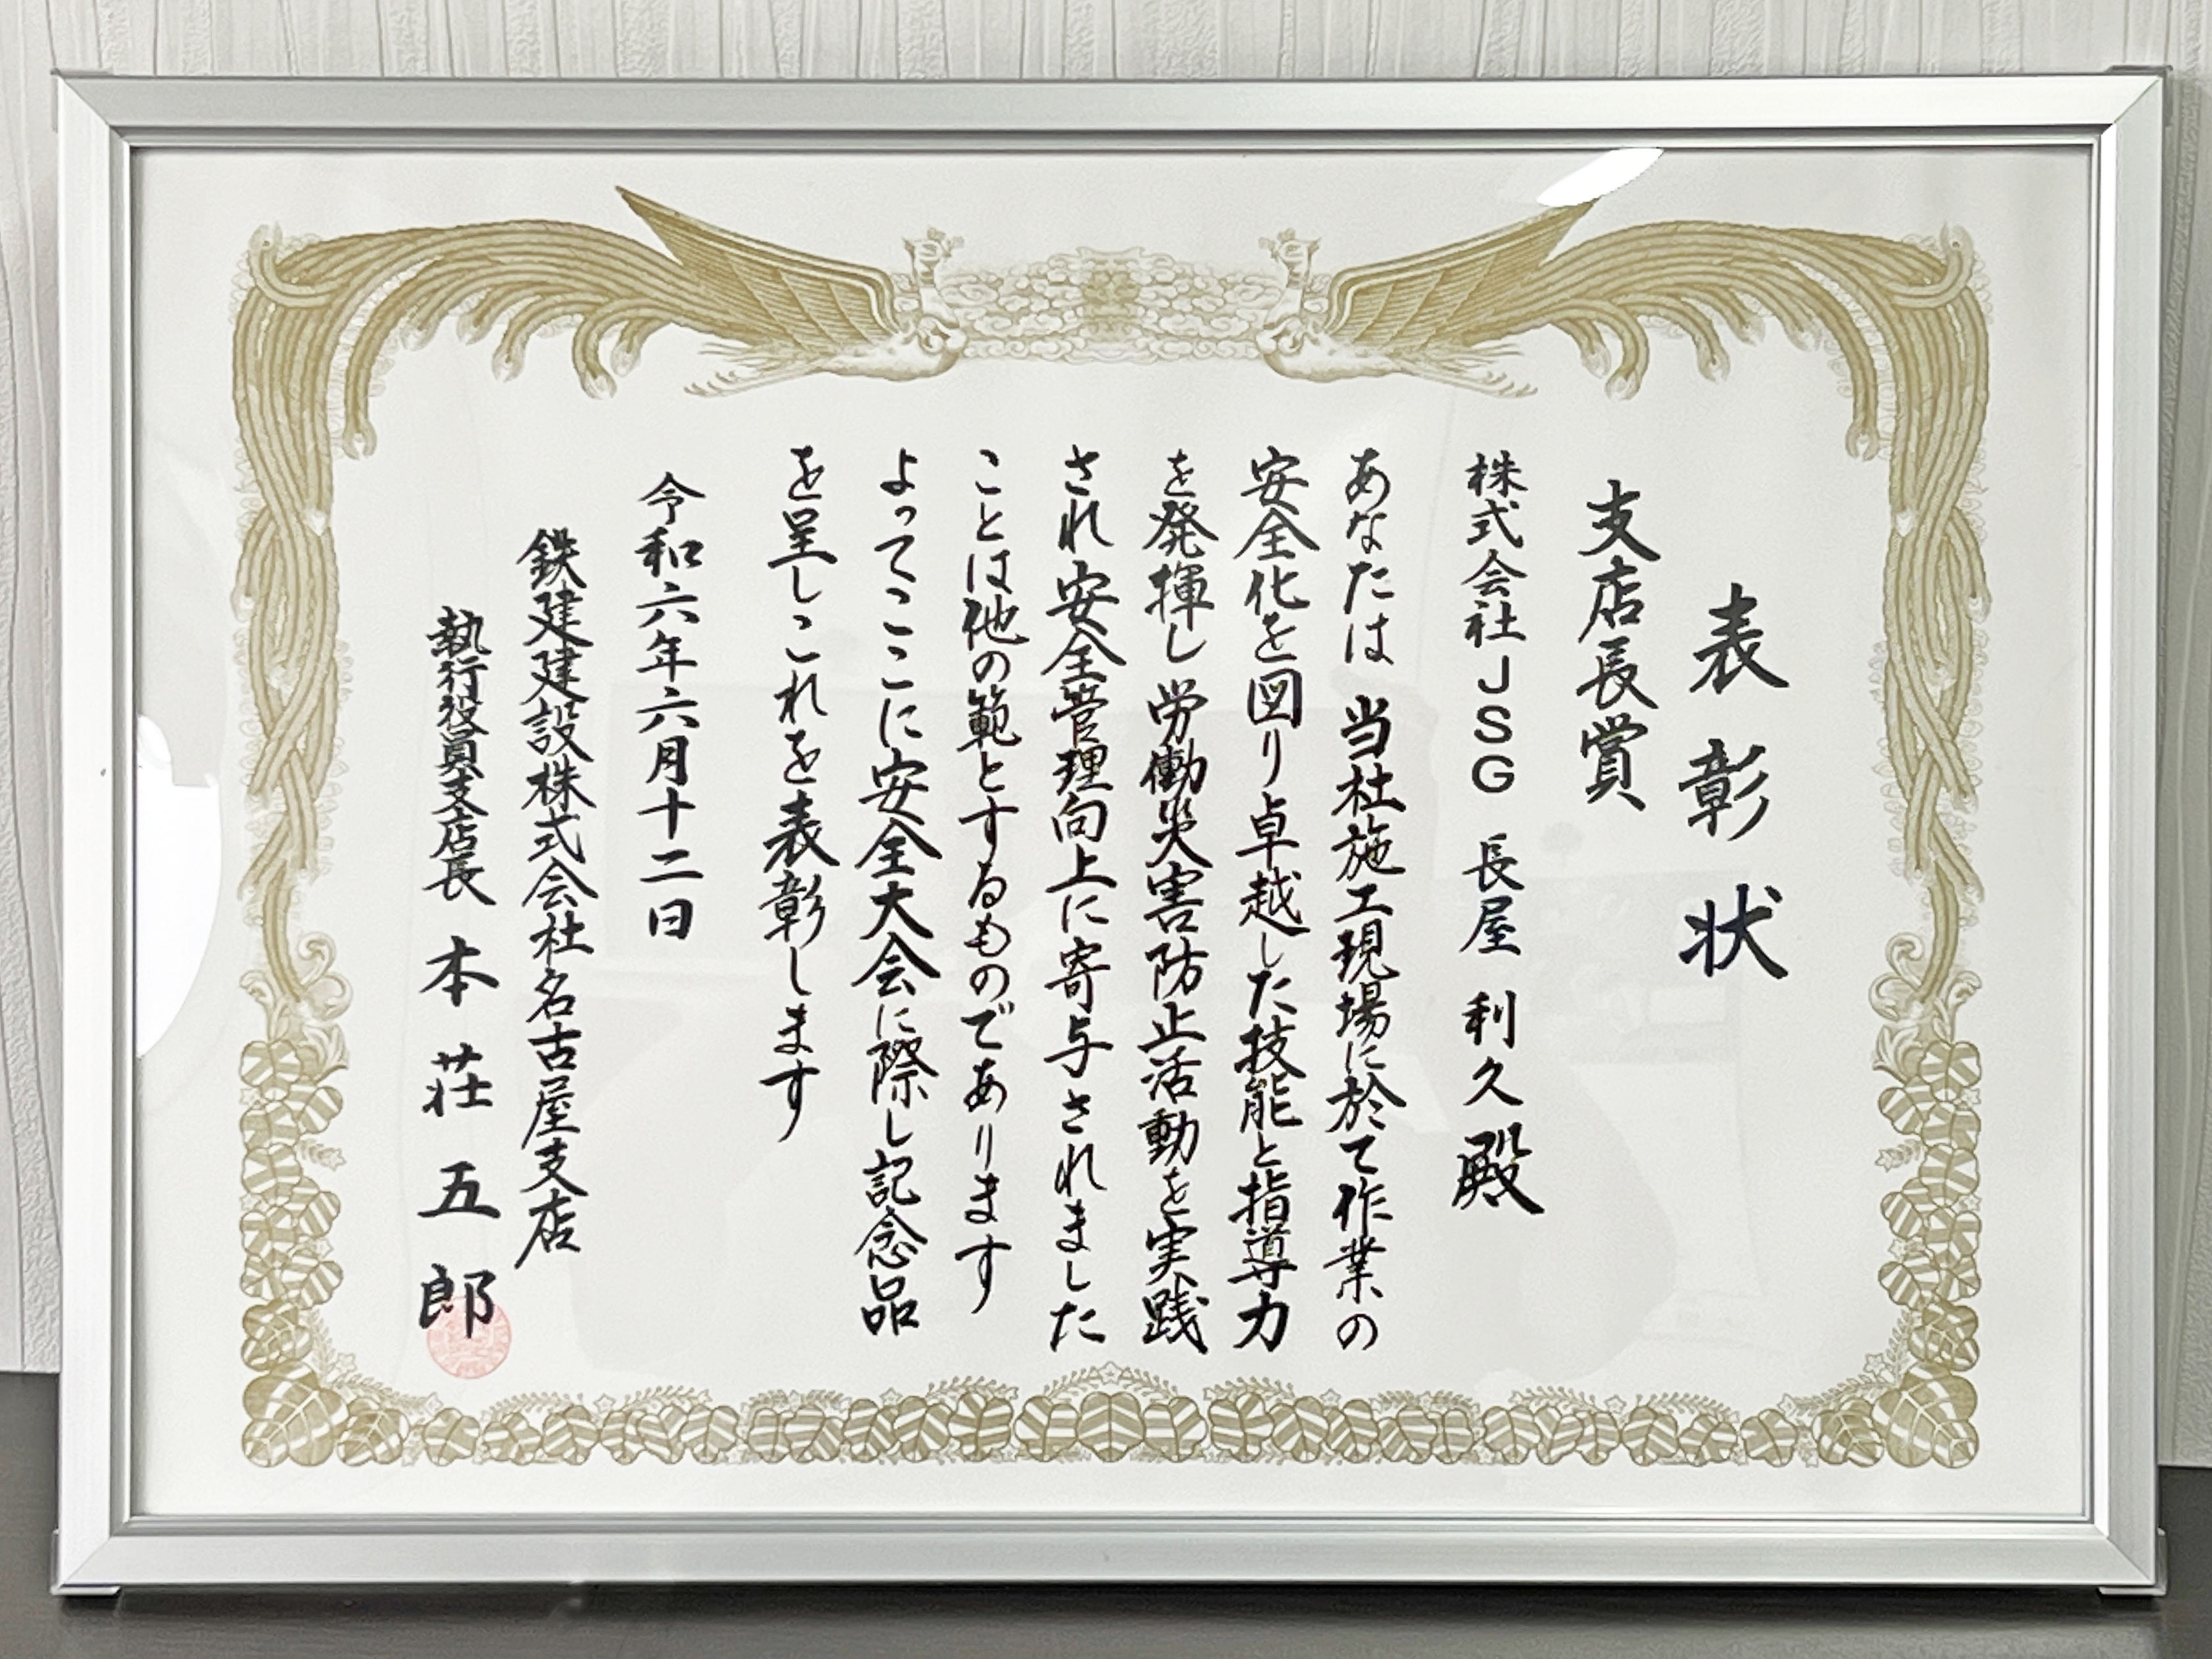 表彰状
支店長賞
株式会社JSG 長屋 利久 殿
あなたは 当社施工現場に於て作業の
安全化を図り卓越した技能と指導力
を発揮し労働災害防止活動を実践
され安全管理向上に寄与されました
ことは他の範とするものであります
よってここに安全大会に際し記念品
を呈しこれを表彰します
令和六年六月十二日
鉄建建設株式会社名古屋支店
執行役員支店長 本荘五郎